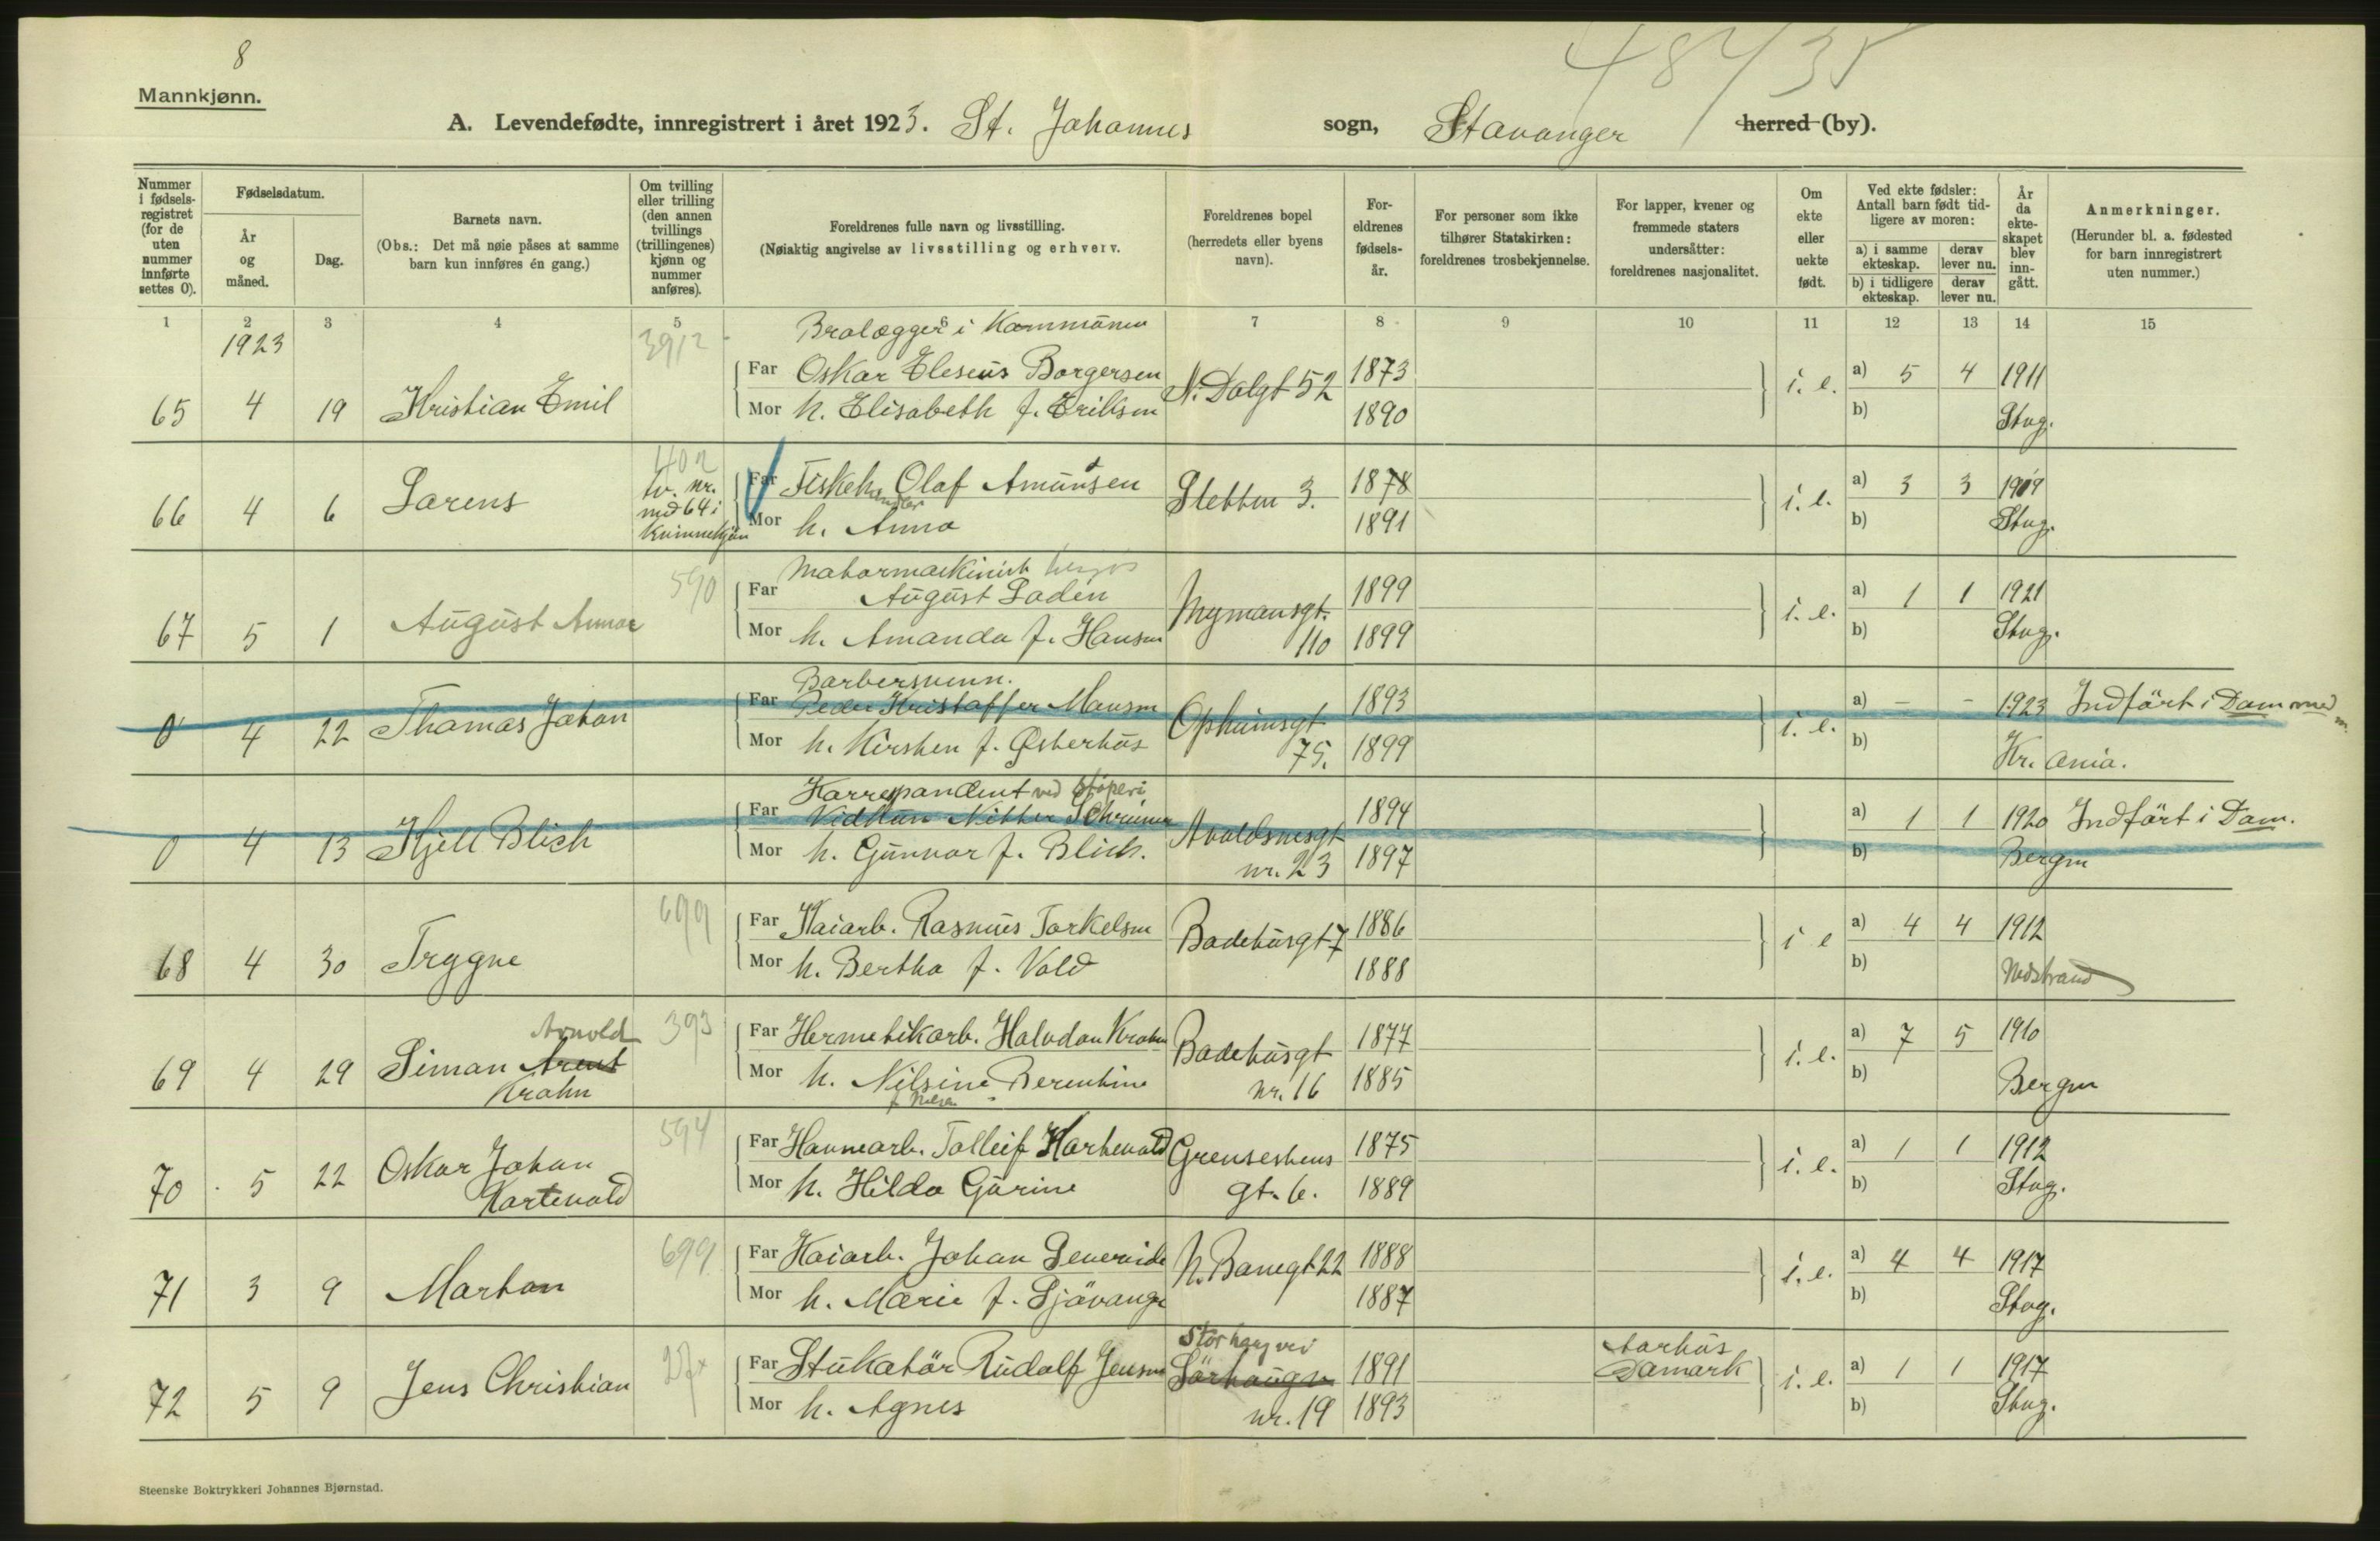 8
48435
Mannkjønn.
A. Levendefødte, innregistrert i året 1923. St. Johannes sogn, Stavanger herred (by).
Nummer i fødselsregistret (for de uten nummer innførte settes 0).
Fødselsdatum.
År og måned.
Dag.
Barnets navn.
(Obs.: Det må nøie påses at samme barn kun innføres én gang.)
Om tvilling eller trilling (den annen tvillings (trillingenes) kjønn og nummer anføres).
Foreldrenes fulle navn og livsstilling.
(Nøiaktig angivelse av livsstilling og erhverv.
Foreldrenes bopel (herredets eller byens navn).
Foreldrenes fødselsår.
For personer som ikke tilhører Statskirken: foreldrenes trosbekjennelse.
For lapper, kvener og fremmede staters undersåtter: foreldrenes nasjonalitet.
Om ekte eller uekte født.
Ved ekte fødsler: Antall barn født tidligere av moren:
a) i samme ekteskap.
derav lever nu.
b) i tidligere ekteskap.
derav lever nu.
År da ekteskapet blev inngått.
Anmerkninger.
(Herunder bl. a. fødested for barn innregistrert uten nummer.)
1 2 3 4 5 6 7 8 9 10 11 12 13 14 15
1923
3912
Brolægger i Kommunen
Far Oskar Eleseus Borgersen 1873
65 4 19 Kristian Emil N. Dalgt 52 i. e. a) 5 4 1911
Mor h. Elisabeth f. Eriksen 1890 b) Stvg.
402
66 4 6 Lorens tv. nr. med 64 i Kvinnekjøn
Far Fiskehandler Olaf Amundsen Sletten 3. 1878 i. e. a) 3 3 1909
Mor h. Anna 1891 b) Stvg.
590
Motormaskinist
Far August Lodén 1899
67 5 1 August Annar Nymansgt. 110 i. e. a) 1 1 1921
Mor h. Amanda f. Hansen 1899 b) Stvg.
Barbersvenn.
Far Peder Kristoffer Monsen 1893
0 4 22 Thomas Johan Opheimsgt 75. i. e. a) - - 1923 Indført i Dom
Mor h. Kirsten f. Østerhus 1899 b) Kr.ania.
Korrespondent ved støperi
Far Vidkun Nitter Schreiner 1894
0 4 13 Kjell Blich Avaldsnesgt nr. 23 a) 1 1 1920 Indført i Dom.
Mor h. Gunvor f. Blich. 1897 b) Bergen
699
Far Kaiarb. Rasmus Torkelsen 1886
68 4 30 Trygve Badehusgt 7 i e a) 4 4 1912
Mor h. Bertha f. Vold 1888 b) Nedstrand
393
Far Hermetikarb. Halvdan Krohn 1877
69 4 29 Simon Arent Arnold Krohn Badehusgt nr. 16 i. e. a) 7 5 1910
Mor h. Nilsine Berentine 1885 b) Bergen
f. Nilsen
594
Far Havnearb. Tolleif Kartevold 1875
70 5 22 Oskar Johan Kartevold Grensestens gt. 6. i. e. a) 1 1 1912
Mor h. Hilda Gurine 1889 b) Stvg.
699
Far Kaiarb. Johan Levernide 1888
71 3 9 Morton N. Banegt 22 i. e. a) 4 4 1917
Mor h. Marie f. Sjövange 1887 b) Stvg.
Storhaugvei
Far Stukatör Rudolf Jensen Sörhaugv nr. 19 1891 Aarhus Danmark
72 5 9 Jens Christian i. e. a) 1 1 1917
Mor h. Agnes 1893 b) Stvg.
Steenske Boktrykkeri Johannes Bjørnstad.